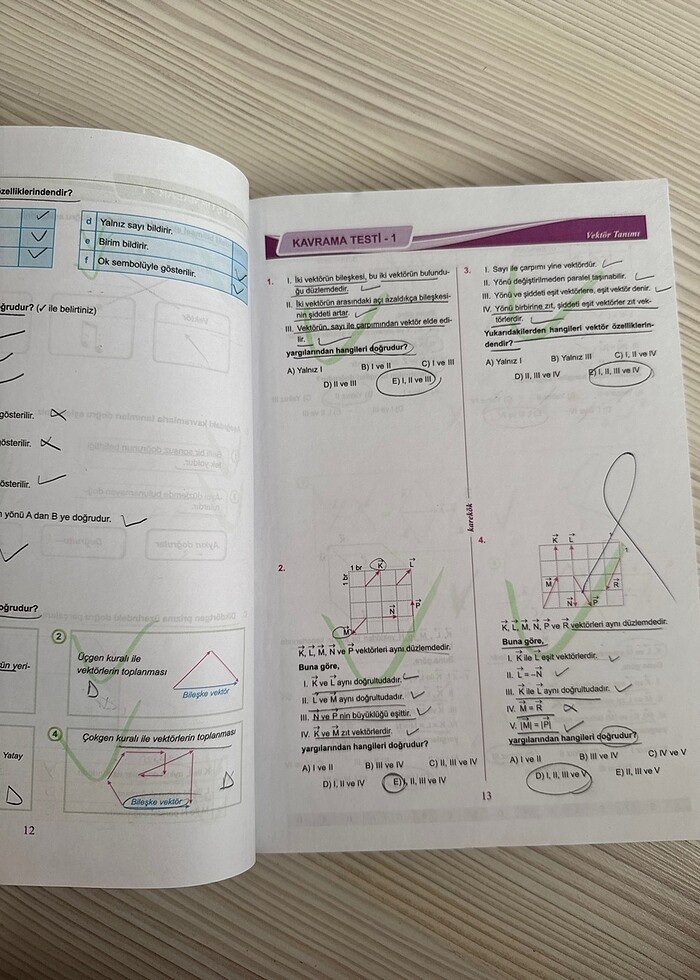 özelliklerindendir?
d Yalnız sayı bildirir.
e Birim bildirir.
f Ok sembolüyle gösterilir.
ğrudur? (✓ ile belirtiniz)
gösterilir.
österilir.
österilir.
yönü A dan B ye doğrudur.
oğrudur?
2
Üçgen kuralı ile
vektörlerin toplanması
D
Bileşke vektör
ün yeri-
4
Çokgen kuralı ile vektörlerin toplanması
Yatay
D
D
Bileşke vektör
12
KAVRAMA TESTİ - 1
Vektör Tanımı
1. I. İki vektörün bileşkesi, bu iki vektörün bulundu-
ğu düzlemdedir.
II. İki vektörün arasındaki açı azaldıkça bileşkesi-
nin şiddeti artar.
III. Vektörün, sayı ile çarpımından vektör elde edi-
lir.
yargılarından hangileri doğrudur?
A) Yalnız I B) I ve II C) I ve III
D) II ve III E) I, II ve III
2.
1 br K L
1 br
N P
M
K, L, M, N ve P vektörleri aynı düzlemdedir.
Buna göre,
I. K ve L aynı doğrultudadır.
II. L ve M aynı doğrultudadır.
III. N ve P nin büyüklüğü eşittir.
IV. K ve M zıt vektörlerdir.
yargılarından hangileri doğrudur?
A) I ve II B) III ve IV C) II, III ve IV
D) I, II ve IV E) I, II, III ve IV
karekök
3. I. Sayı ile çarpımı yine vektördür.
II. Yönü değiştirilmeden paralel taşınabilir.
III. Yönü ve şiddeti eşit vektörlere, eşit vektör denir.
IV. Yönü birbirine zıt, şiddeti eşit vektörler zıt vek-
törlerdir.
Yukarıdakilerden hangileri vektör özelliklerin-
dendir?
A) Yalnız I B) Yalnız III C) I, II ve IV
D) II, III ve IV E) I, II, III ve IV
4.
K L
M R
N P
K, L, M, N, P ve R vektörleri aynı düzlemdedir.
Buna göre,
I. K ile L eşit vektörlerdir.
II. L = -N
III. K ile L aynı doğrultudadır.
IV. M = R
V. |M| = |P|
yargılarından hangileri doğrudur?
A) I ve II B) III ve IV C) IV ve V
D) I, II, III ve V E) II, III ve V
13